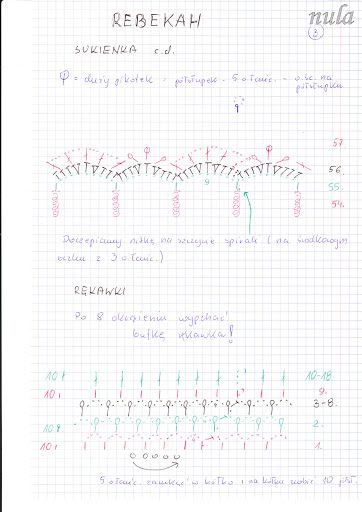 nula
REBEKAH
3
SUKIENKA c.d.
= duży pikotek = półsłupek - 5 o.łańc. - o.śc. na
półsłupku
57.
56.
9
55.
54.
Doczepiamy nitkę na szczycie spirali (na środkowym
oczku z 3 o.łańc.)
RĘKAWKI
Po 8 okrążeniu wypchać
bufkę rękawka!
10 ł 10-18
10 ı 9.
3-8.
10 2.
10 ı 1.
5 o.łańc. zamknąć w kółko i na kółku robić 10 płsł.